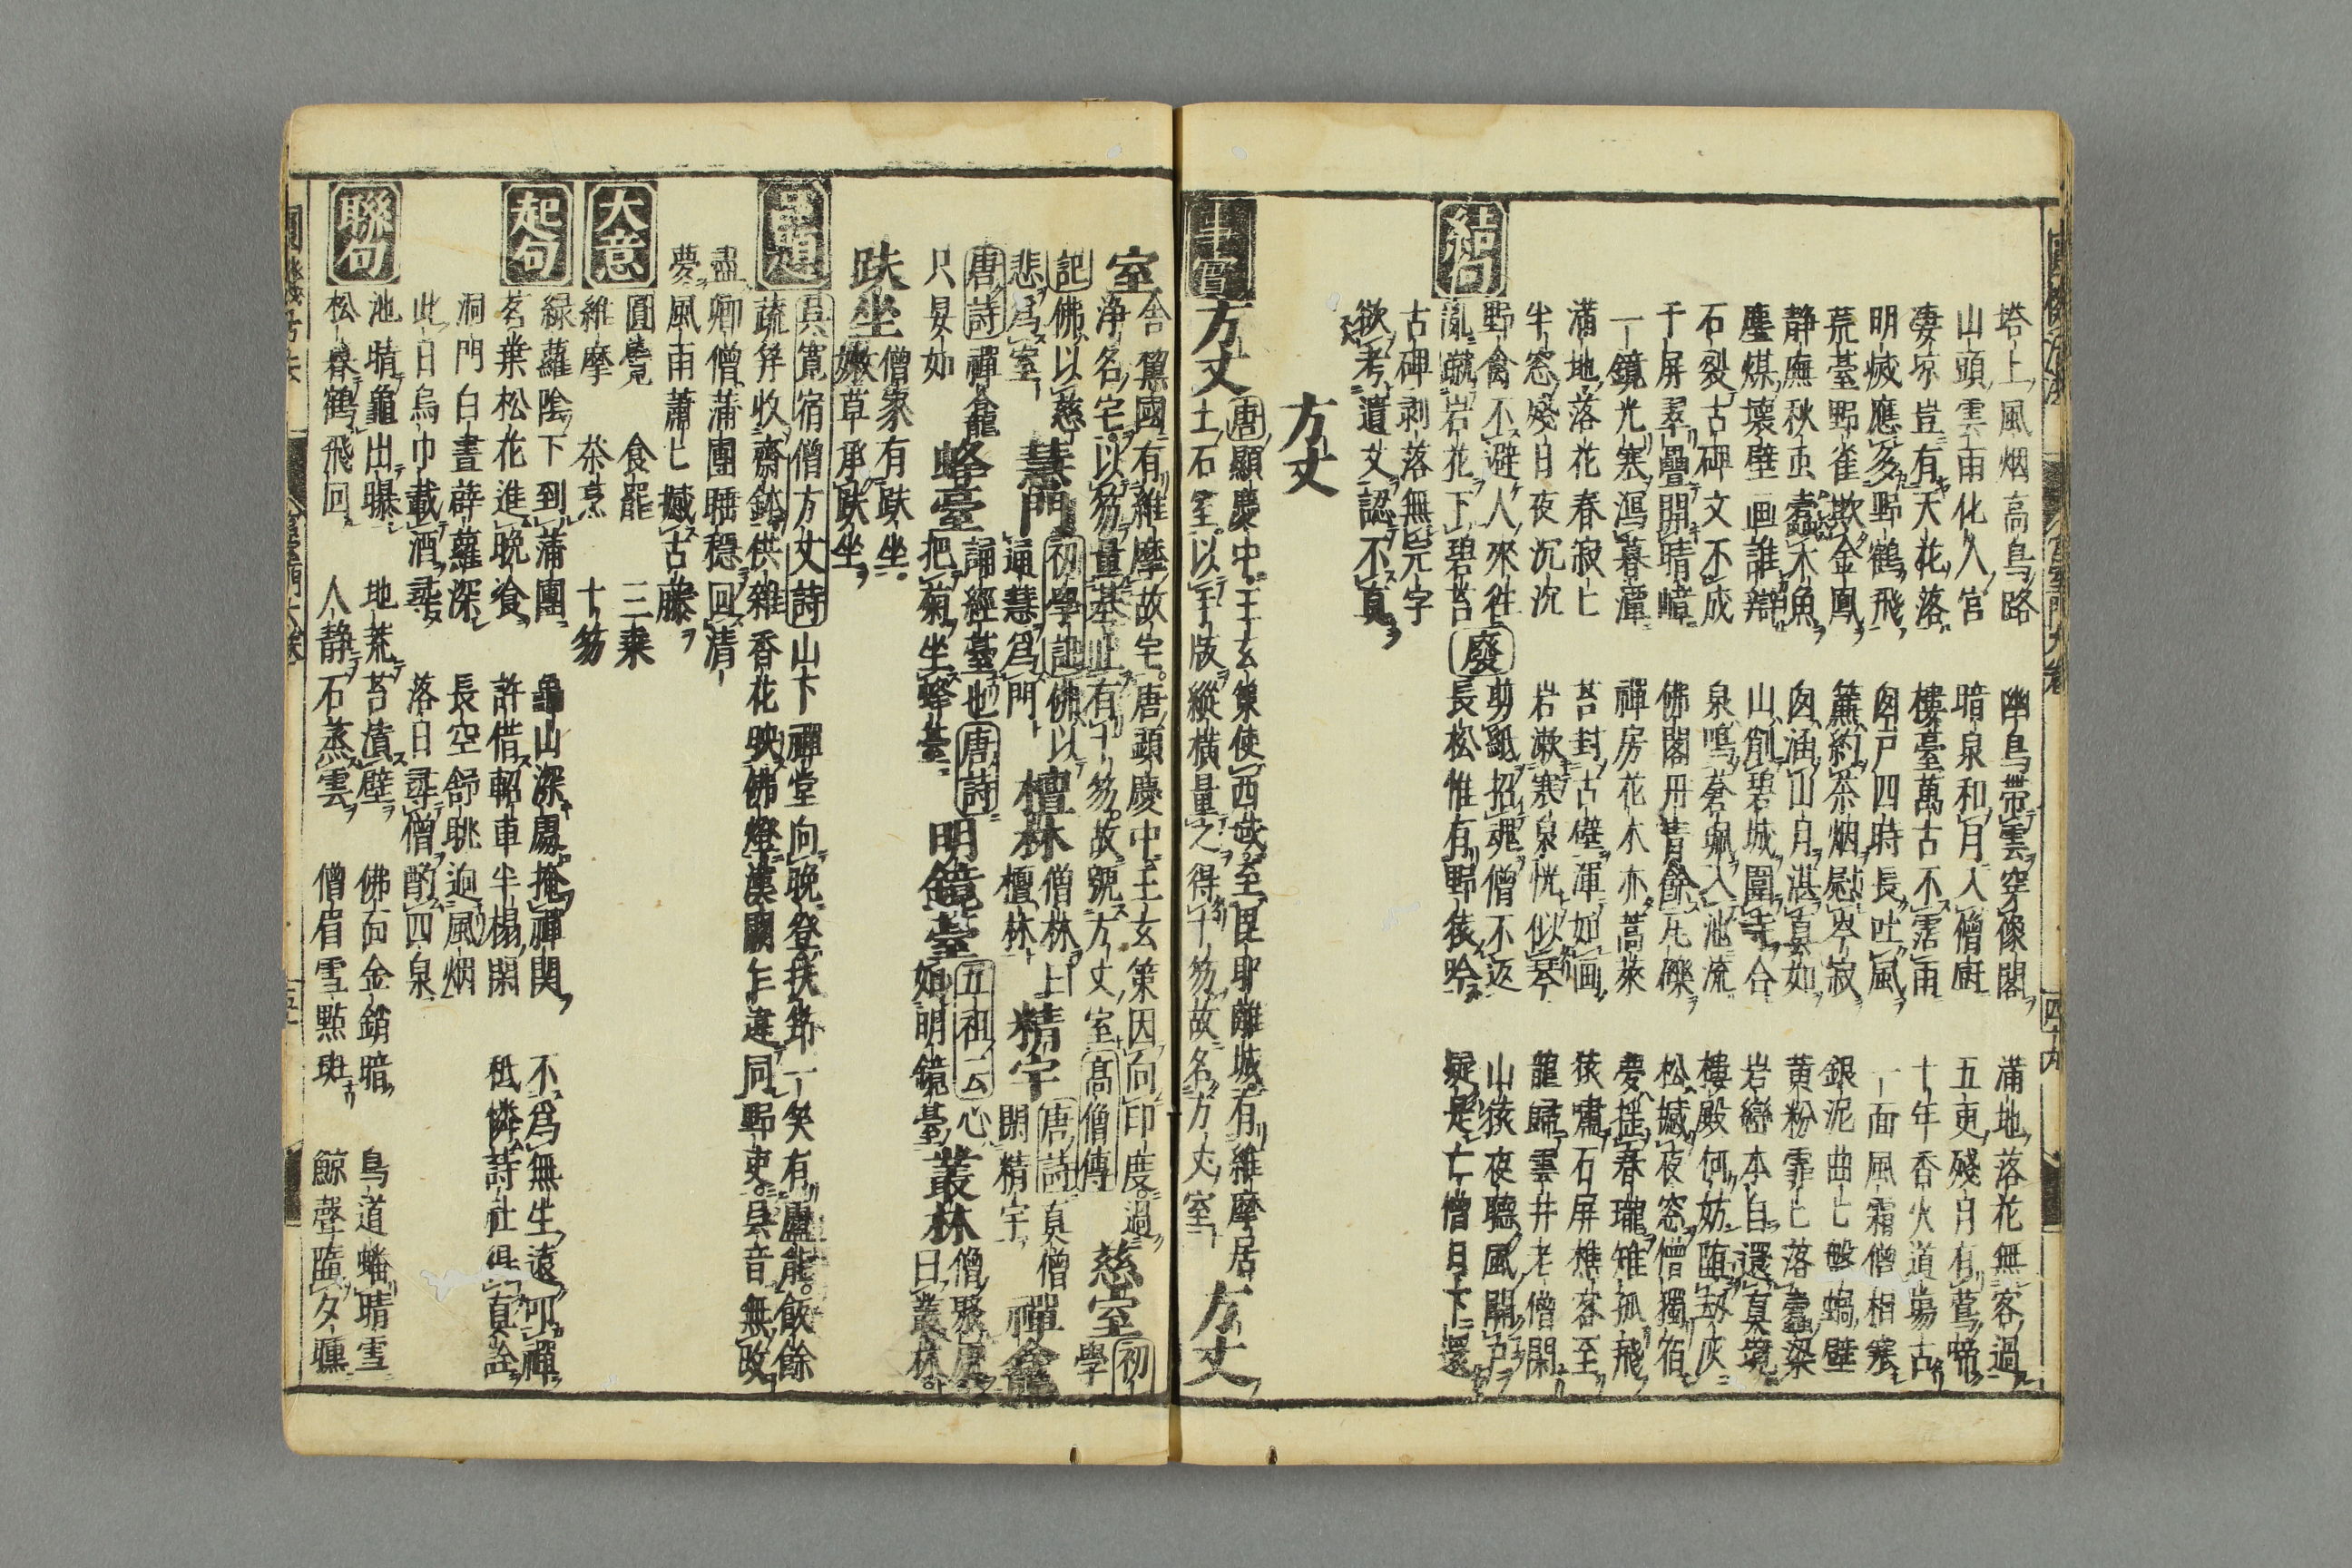 塔上風烟高鳥路 幽鳥帶雲穿像閣 滿地落花無客過
山頭雲雨化人宮 暗泉和月入僧廚 五更殘月有鶯啼
凄凉豈有天花落 樓臺萬古不霑雨 十年香火道場古
明滅應多野鶴飛 囱戸四時長吐風 一面風霜僧相寒
荒臺野雀欺金鳳 簾約茶烟慰岑寂 銀泥曲〻盤蝸壁
静廡秋虫蠹木魚 囱涵山月湛真如 黄粉霏〻落蠹梁
塵煤壞壁画誰辯 山創碧城圍寺合 岩巒本自還真境
石裂古碑文不成 泉鳴蒼珮入池流 樓殿何妨墮劫灰
千屏翠疊開晴嶂 佛閣丹青餘瓦礫 松撼夜窓僧獨宿
一鏡光寒瀉暮潭 禪房花木亦蒿萊 麥揺春瓏雉孤飛
滿地落花春寂〻 苔封古壁渾如画 猿嘯石屏樵客至
半窓殘日夜沉沉 岩漱寒泉恍似琴 龍歸雲井老僧閑
野禽不避人來往 剪紙招魂僧不返 山猿夜聽風開戸
結句 亂蹴岩花下碧苔 廢 長松惟有野猿吟 疑是亡僧月下還
古碑剥落無完字
欲考遺文認不真
方丈
事實 方丈 唐顯慶中王玄策使西域至毘耶離城有維摩居 方丈
土石室以手版縱横量之得十笏故名方丈室
室 舎黨國有維摩故宅唐顯慶中王玄策因向印度過 慈室 初
浄名宅以笏量基止有十笏故號方丈室 高僧傳 學
記 佛以慈 慧門 初學記 佛以 檀林 僧林曰 精宇 唐詩 真僧 禪龕
悲爲室 逼慧爲門 檀林 閑精宇
唐詩 禪龕 蜂臺 誦經臺也 唐詩 明鏡臺 五祖云 心 叢林 僧聚處
只晏如 把菊坐蜂臺 如明鏡臺 曰叢林
趺坐 僧家有趺坐
嫩草承趺坐
品題 呉寛宿僧方丈詩 山下禪堂向晩登扶筇一笑有盧能飯餘
蔬筍收齋鉢供雜香花映佛燈漢闕乍違同野吏呉音無改
盡郷僧蒲團睡穩回清
夢風雨蕭〻撼古藤
大意 圓覺 食罷 三乗
維摩 茶烹 十笏
起句 緑蘿陰下到蒲團 龜山深處掩禪関 不爲無生遠叩禪
茗葉松花進晩飡 許借軺車半榻閑 秪憐詩社得真詮
洞門白晝薜蘿深 長空舒眺逈風烟
此日烏巾載酒尋 落日尋僧酌四泉
聯句 池晴龜出曝 地荒苔漬壁 佛面金銷暗 鳥道蟠晴雪
松暮鶴飛回 人静石蒸雲 僧眉雪點斑 鯨聲隨夕曛